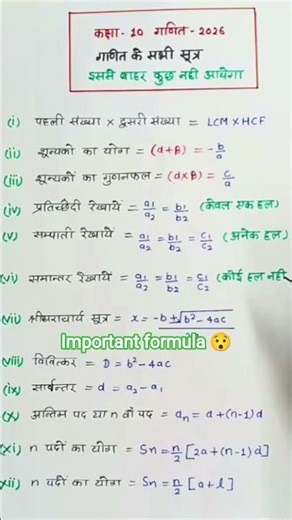 कक्षा - 10 गणित - 2026
गणित के सभी सूत्र
इससे बाहर कुछ नहीं आयेगा
(i) पहली संख्या × दूसरी संख्या = LCM × HCF
(ii) शून्यकों का योग = (α+β) = -b/a
(iii) शून्यकों का गुणनफल = (α×β) = c/a
(iv) प्रतिच्छेदी रेखायें = a₁/a₂ = b₁/b₂ (केवल एक हल)
(v) सम्पाती रेखायें = a₁/a₂ = b₁/b₂ = c₁/c₂ (अनेक हल)
(vi) समान्तर रेखायें = a₁/a₂ = b₁/b₂ = c₁/c₂ (कोई हल नहीं
(vii) श्रीधराचार्य सूत्र = x = -b ± √b² - 4ac
Important formula 😯
(viii) विविक्तकर = D = b² - 4ac
(ix) सार्वन्तर = d = a₂ - a₁
(x) अन्तिम पद या n वाँ पद = aₙ = a + (n-1) d
(xi) n पदों का योग = Sn = n/2 [2a + (n-1) d]
(xii) n पदों का योग = Sn = n/2 [a + l]